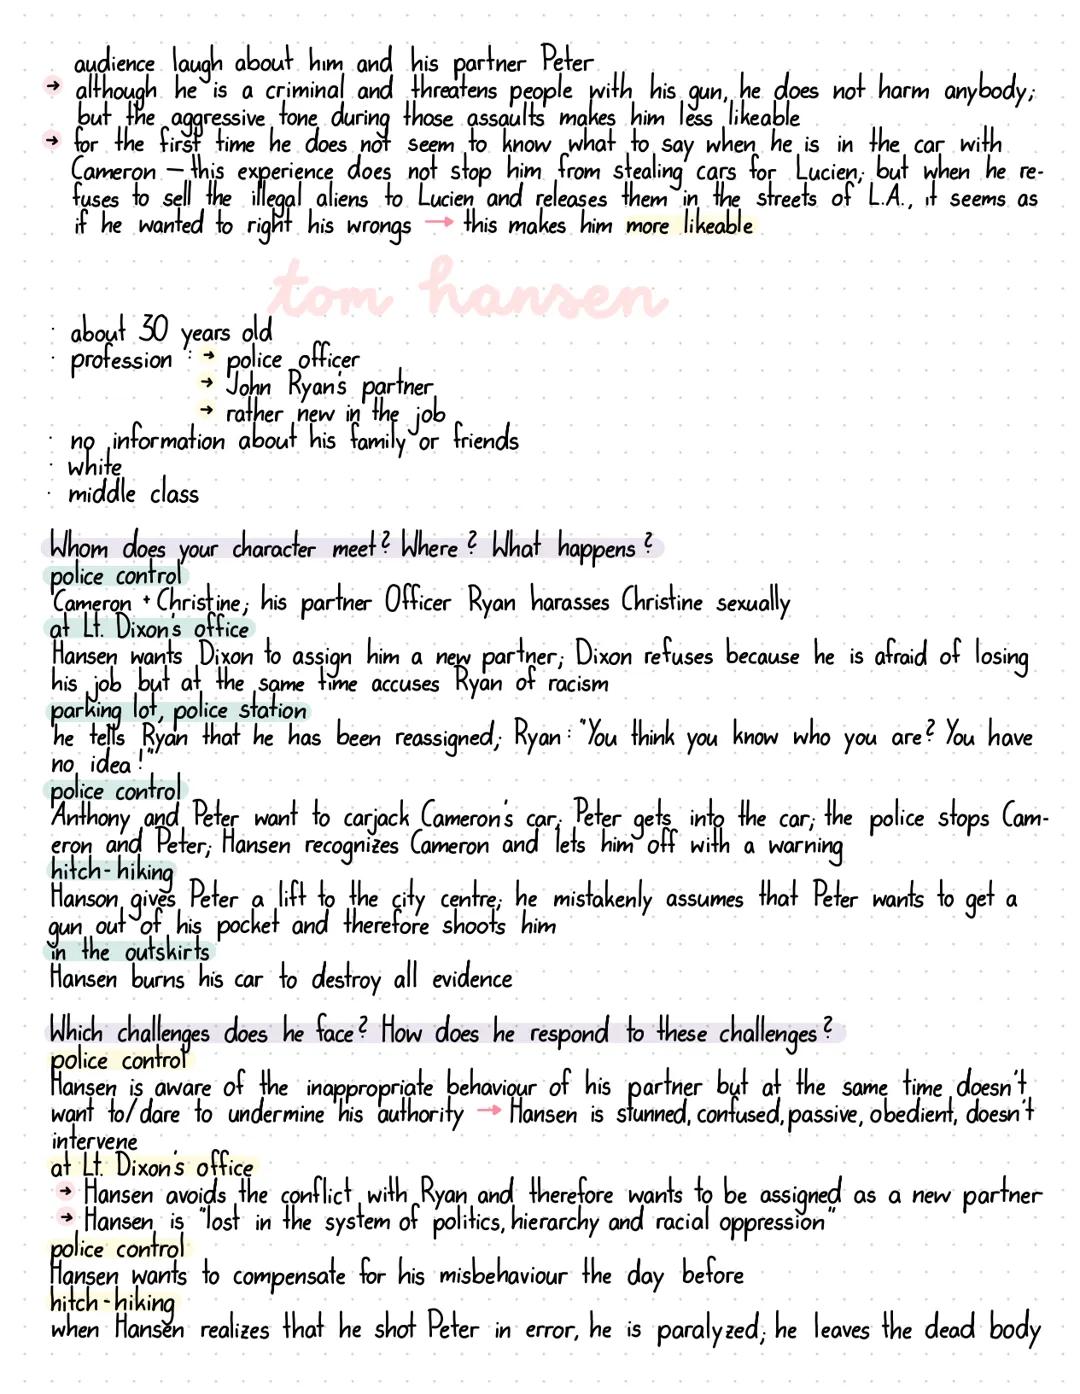 audience laugh about him and his partner Peter
→ although he is a criminal and threatens people with his gun, he does not harm anybody;
but the aggressive tone during those assaults makes him less likeable
→ for the first time he does not seem to know what to say when he is in the car with
Cameron – this experience does not stop him from stealing cars for Lucien; but when he re-
fuses to sell the illegal aliens to Lucien and releases them in the streets of L.A., it seems as
if he wanted to right his wrongs → this makes him more likeable
tom hansen
· about 30 years old
· profession : → police officer
→ John Ryan's partner
→ rather new in the job
· no information about his family or friends
· white
· middle class
Whom does your character meet? Where? What happens?
police control
Cameron + Christine; his partner Officer Ryan harasses Christine sexually
at Lt. Dixon's office
Hansen wants Dixon to assign him a new partner; Dixon refuses because he is afraid of losing
his job but at the same time accuses Ryan of racism
parking lot, police station
he tells Ryan that he has been reassigned; Ryan: "You think you know who you are? You have
no idea!"
police control
Anthony and Peter want to carjack Cameron's car; Peter gets into the car; the police stops Cam-
eron and Peter; Hansen recognizes Cameron and lets him off with a warning
hitch-hiking
Hanson gives Peter a lift to the city centre; he mistakenly assumes that Peter wants to get a
gun out of his pocket and therefore shoots him
in the outskirts
Hansen burns his car to destroy all evidence
Which challenges does he face? How does he respond to these challenges?
police control
Hansen is aware of the inappropriate behaviour of his partner but at the same time doesn't
want to/dare to undermine his authority → Hansen is stunned, confused, passive, obedient, doesn't
intervene
at Lt. Dixon's office
→ Hansen avoids the conflict with Ryan and therefore wants to be assigned as a new partner
→ Hansen is "lost in the system of politics, hierarchy and racial oppression"
police control
Hansen wants to compensate for his misbehaviour the day before
hitch-hiking
when Hansen realizes that he shot Peter in error, he is paralyzed; he leaves the dead body